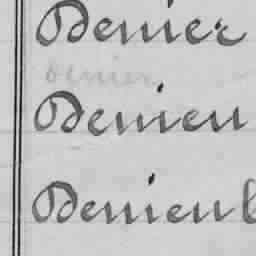 Denier
Denier
Denieu
Denieub